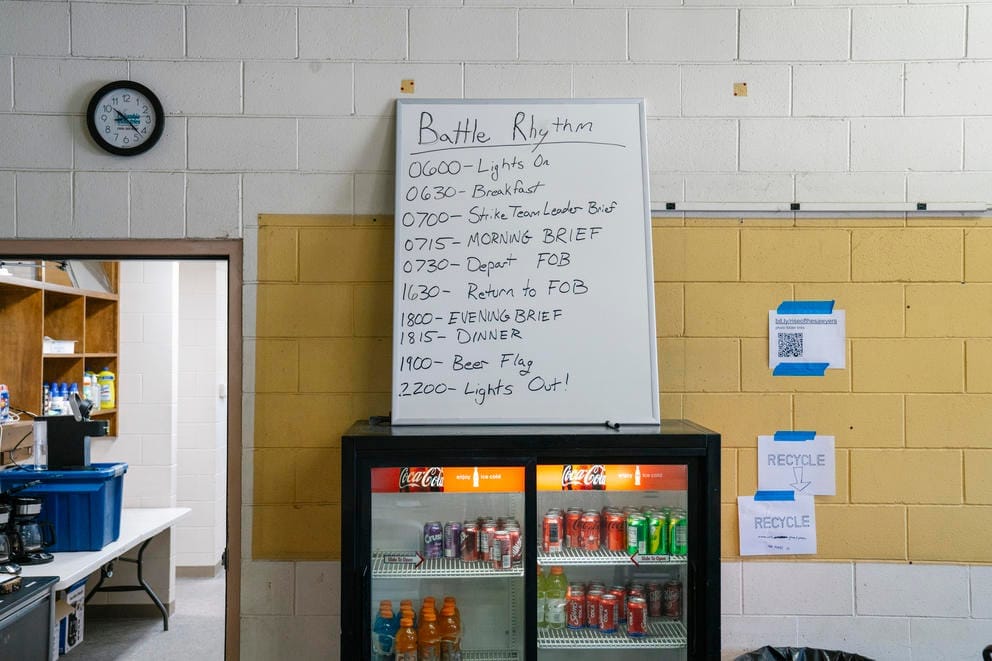 Battle Rhythm
0600-Lights On
0630-Breakfast
0700-Strike Team Leader Brief
0715-MORNING BRIEF
0730-Depart FOB
1630-Return to FOB
1800-EVENING BRIEF
1815-DINNER
1900-Beer Flag
2200-Lights Out!
12
11
10
1
2
3
4
5
bit.ly/riseofthesawyers
RECYCLE
RECYCLE
Coca-Cola enjoy ice cold
Coca-Cola enjoy ice cold
Crush
Slide To Open
Slide To Open